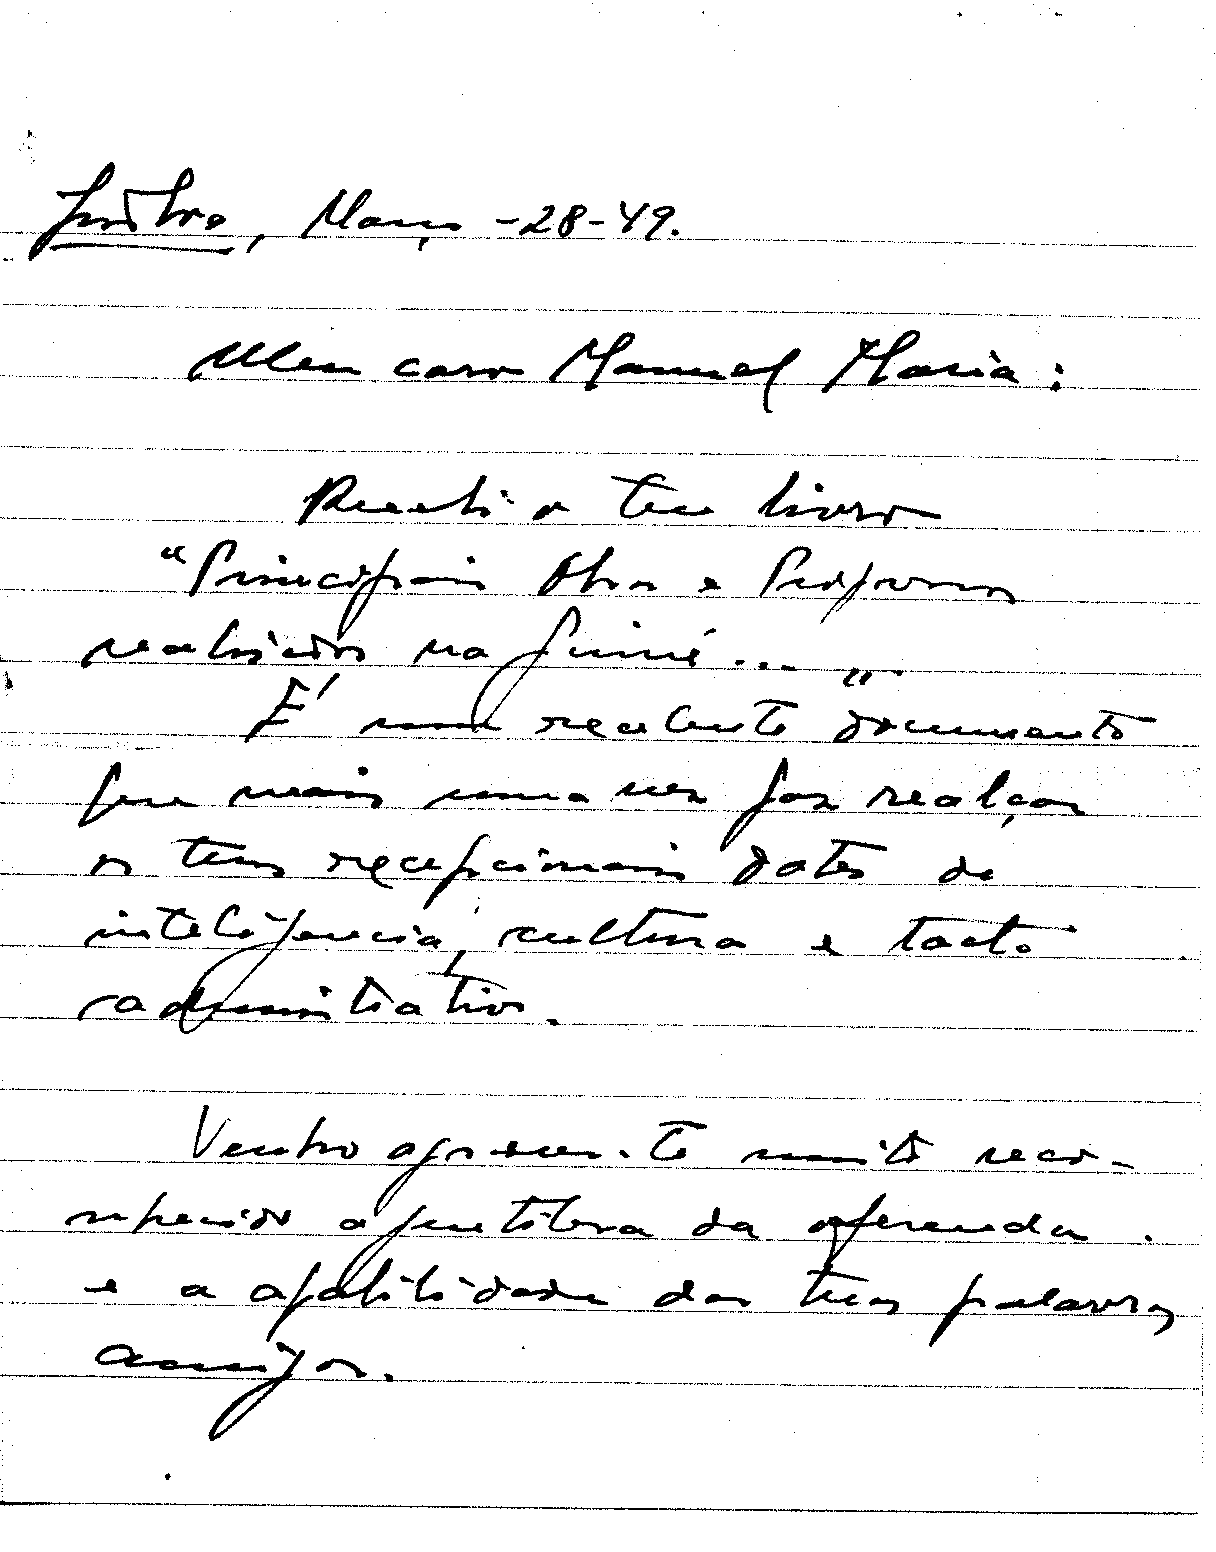 Março -28-49.
Meu caro Manuel Maria:
Recebi o teu livro
"Principais Obras e Progressos
realizados na Guiné..."
É um excelente documento
que mais uma vez faz realçar
os teus excepcionais dotes de
inteligência, cultura e tacto
administrativo.
Venho agradecer-te muito reco-
nhecido a gentileza da oferenda
e a afabilidade das tuas palavras
amigas.